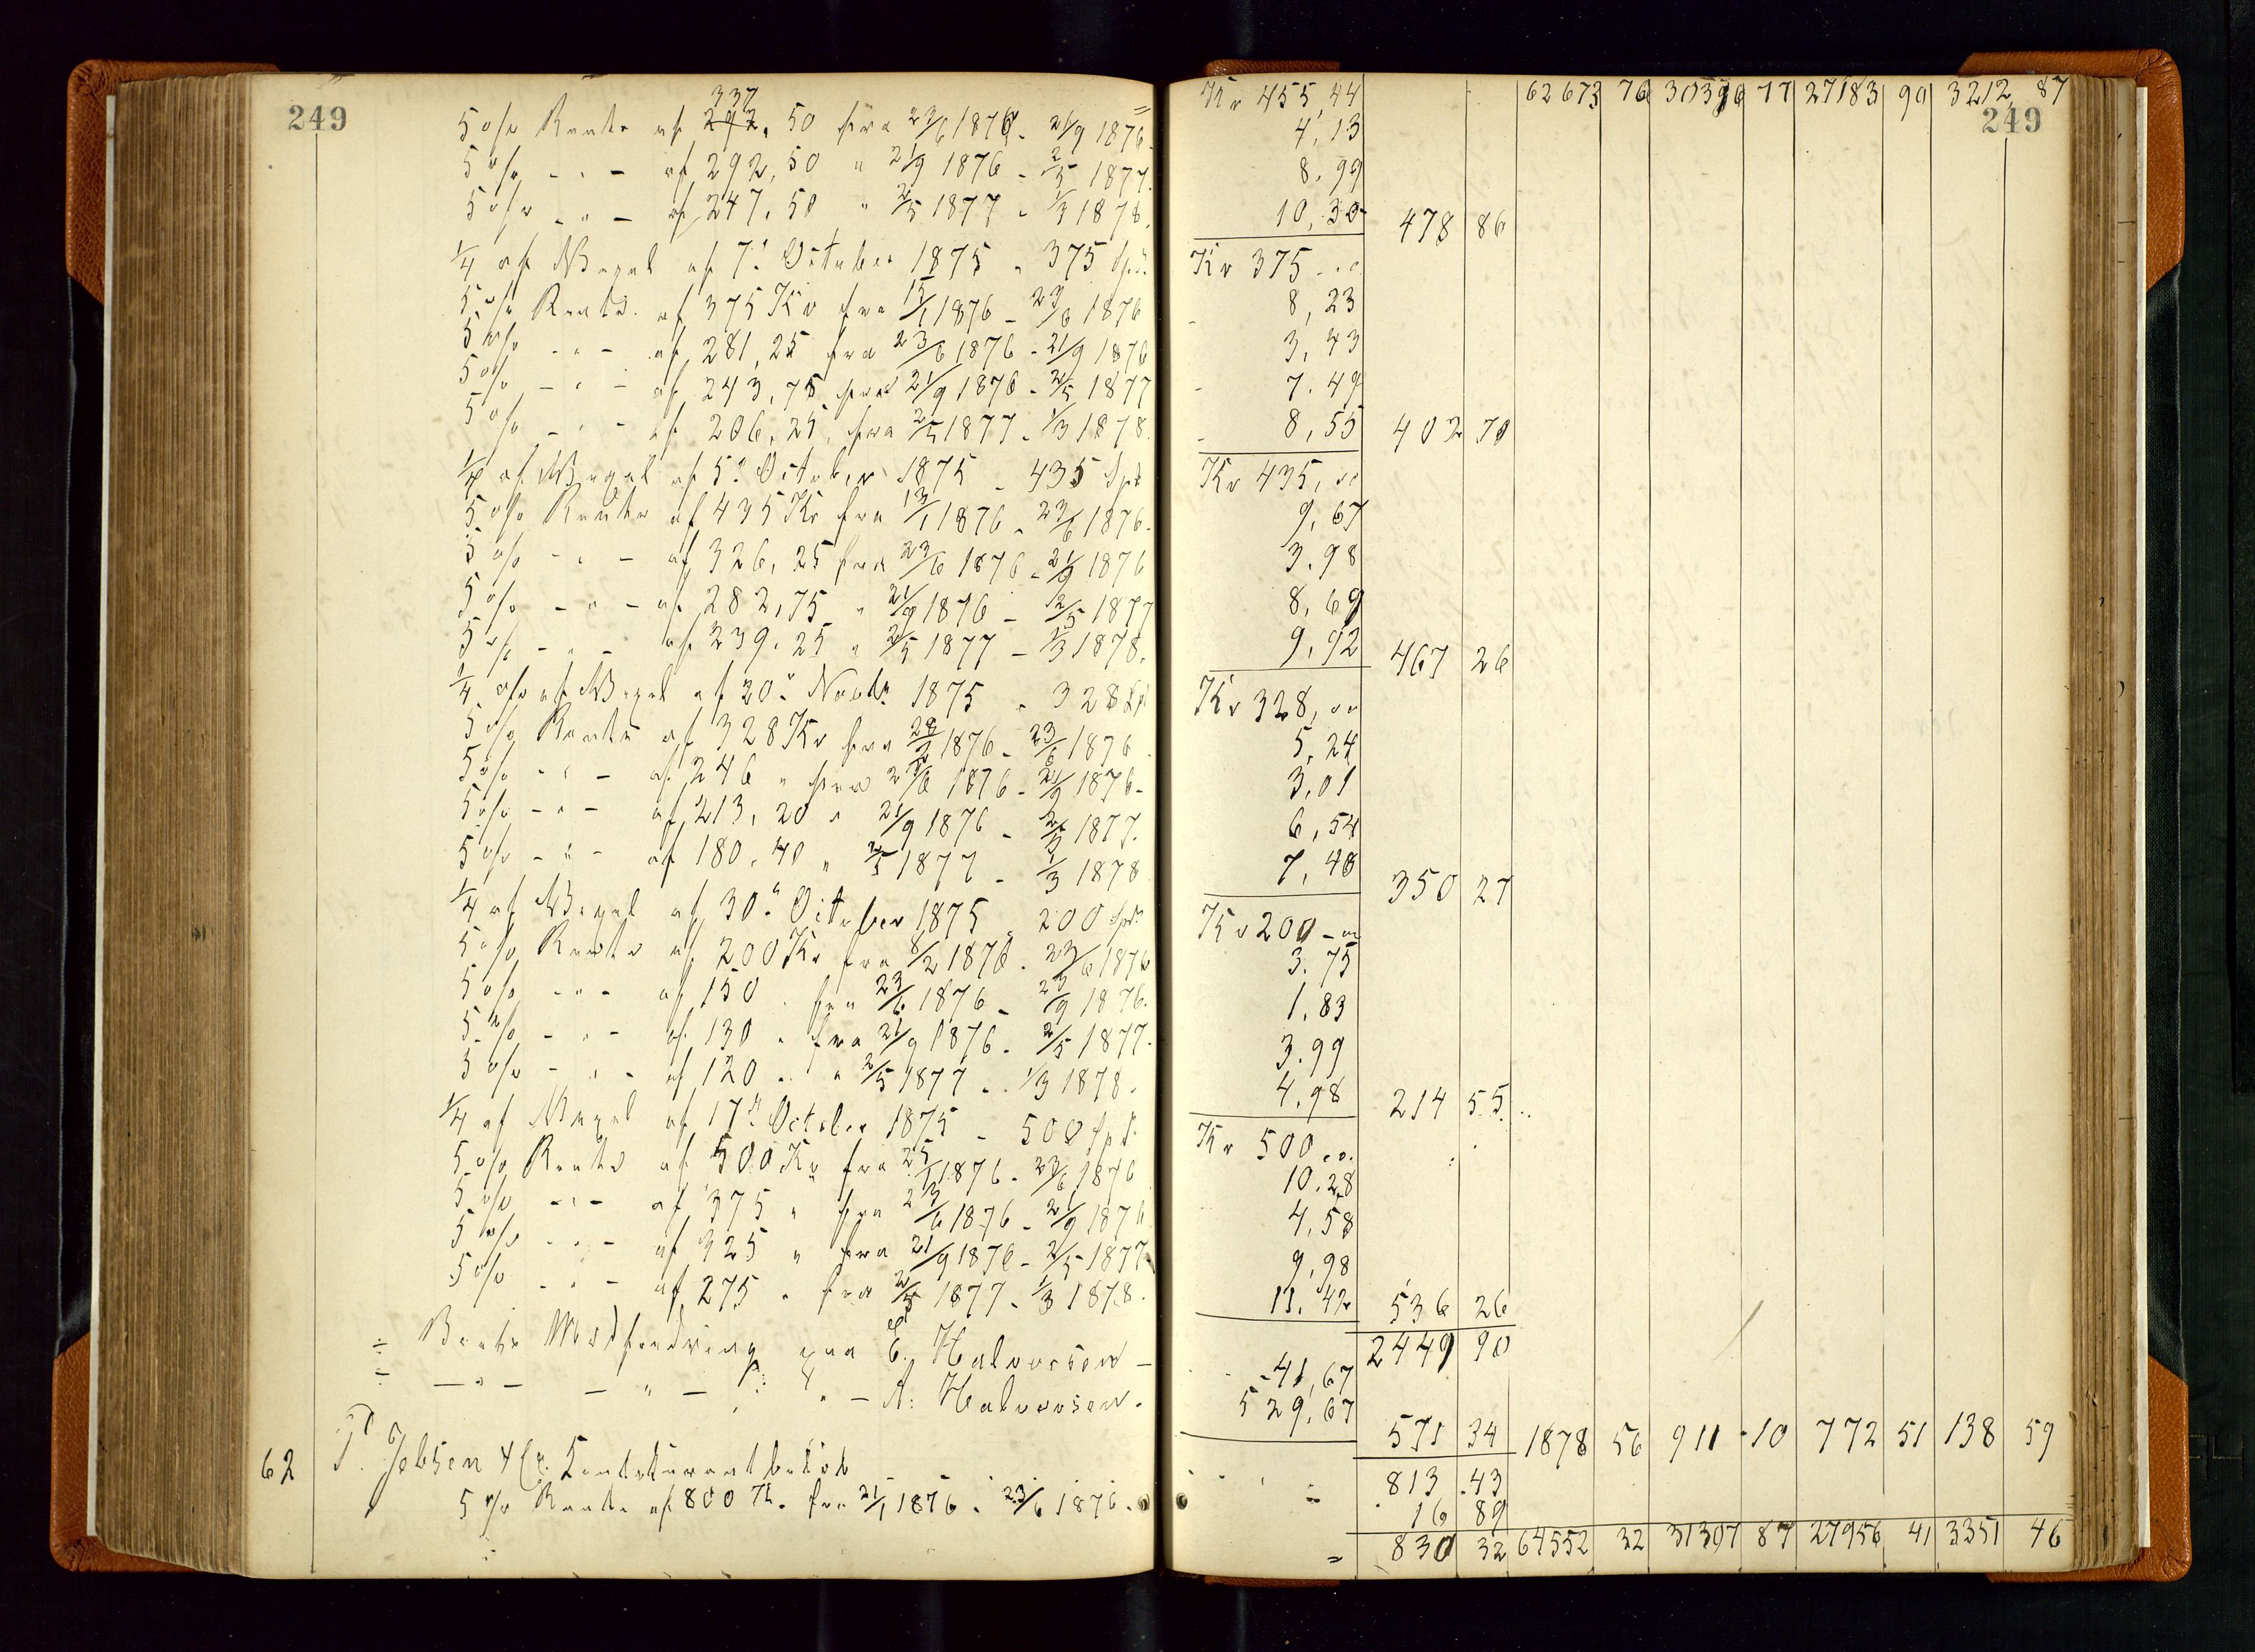 249
Kr 455,44 62673 76 30396 77 27183 90 3212 87
249
337
5 o/o Rente af 292,50 fra 23/6 1876 - 21/9 1876 4,13
5 o/o - " - af 292,50 " 21/9 1876 - 2/5 1877. 8,99
5 o/o - " - af 247,50 " 2/5 1877 - 1/3 1878. 10,30 478 86
1/4 af Vexel af 7de October 1875 - 375 Spd. Kr 375 - "
5 o/o Rente af 375 Kr fra 15/1 1876 - 23/6 1876 8,23
5 o/o - " - af 281,25 fra 23/6 1876 - 21/9 1876 3,43
5 o/o - " - af 243,75 fra 21/9 1876 - 2/5 1877 7.49
5 o/o - " - af 206,25 fra 2/5 1877 - 1/3 1878. 8,55 402 70
1/4 af Vexel af 5te October 1875 - 435 Spd Kr 435, "
5 o/o Rente af 435 Kr fra 13/1 1876 - 23/6 1876. 9,67
5 o/o - " - af 326,25 fra 23/6 1876 - 21/9 1876 3.98
5 o/o - " - af 282,75 " 21/9 1876 - 2/5 1877 8,69
5 o/o - " - af 239,25 " 2/5 1877 - 1/3 1878. 9,92 467 26
1/4 af Vexel af 20de Novbr. 1875 - 328 Spd Kr 328, "
5 o/o Rente af 328 Kr fra 28/2 1876 - 23/6 1876 5,24
5 o/o - " - af 246 " fra 23/6 1876 - 21/9 1876 - 3,01
5 o/o - " - af 213,20 " 21/9 1876 - 2/5 1877. 6,54
5 o/o - " - af 180,40 " 2/5 1877 - 1/3 1878 7,48 350 27
1/4 af Vexel af 30de October 1875 - 200 Spd. Kr 200 - "
5 o/o Rente af 200 Kr fra 8/2 1876 - 23/6 1876 3.75
5 o/o - " - af 150 " fra 23/6 1876 - 23/9 1876. 1.83
5 o/o - " - af 130 " fra 21/9 1876 - 2/5 1877. 3.99
5 o/o - " - af 120 " " 2/5 1877 - 1/3 1878. 4,98 214 55
1/4 af Vexel af 17de October 1875 - 500 Spd. Kr 500 "
5 o/o Rente af 500 Kr fra 25/1 1876 - 23/6 1876 10.28
5 o/o - " - af 375 " fra 23/6 1876 - 21/9 1876 4,58
5 o/o - " - af 325 " fra 21/9 1876 - 2/5 1877 9,98
5 o/o - " - af 275 " fra 2/5 1877 - 1/3 1878. 11.42 536 26
2449 90
÷ Boets Modfordring paa E. Halvorsen - 41,67
÷ - " - - " - " - A. Halvorsen. 529,67
571 34 1878 56 911 10 772 51 138 59
62 P. Jebsen & Co. Contokurantbeløb 813 43
5 o/o Rente af 800 Kr. fra 21/1 1876 - 23/6 1876. 16 89
830 32 64552 32 31307 87 27956 41 3351 46